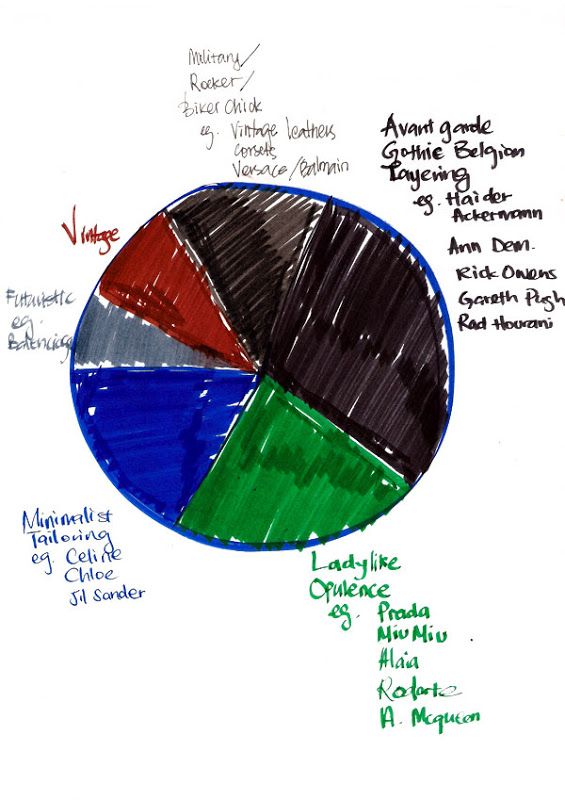 Military/
Rocker/
Biker Chick
eg. Vintage leathers
corsets
Versace/Balmain
Avant garde
Gothic Belgian
Layering
eg. Haider
Ackermann
Ann Dem.
Rick Owens
Gareth Pugh
Rad Hourani
Vintage
Futuristic
eg.
Balenciaga
Minimalist
Tailoring
eg. Celine
Chloe
Jil Sander
Ladylike
Opulence
eg. Prada
Miu Miu
Alaia
Rodarte
A. Mcqueen